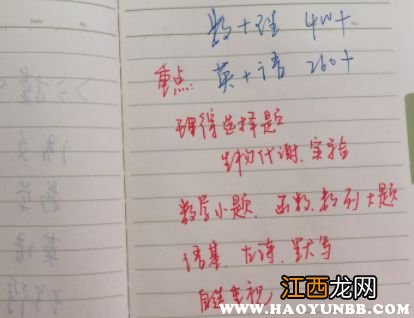 数+理 400+
重点: 英+语 260+
理综选择题
生物代谢.实验
数学小题. 函数.数列大题
语基. 古诗. 默写
自律
江西龙网
WWW.HAOYUNBB.COM